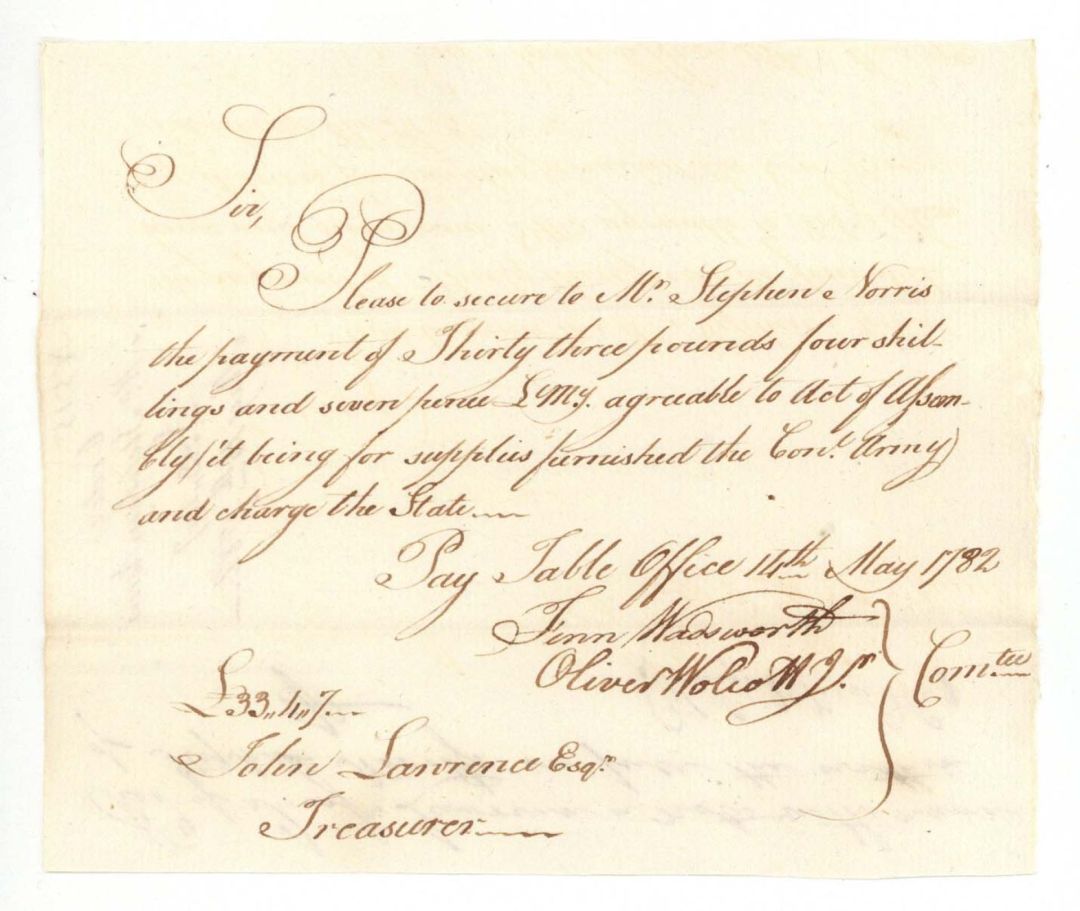 Sir,
Please to secure to Mr. Stephen Norris
the payment of Thirty three pounds four shil-
lings and seven pence L. My. agreeable to Act of Assem-
bly (it being for supplies furnished the Conl. Army)
and charge the State
Pay Table Office 14th May 1782
Fenn Wadsworth
Oliver Wolcott Jr.
Comtee
£33,,4,,7
John Lawrence Esqr.
Treasurer